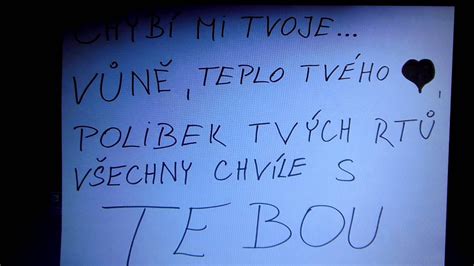 CHYBÍ MI TVOJE...
VŮNĚ, TEPLO TVÉHO ♥,
POLIBEK TVÝCH RTŮ
VŠECHNY CHVÍLE S
TEBOU